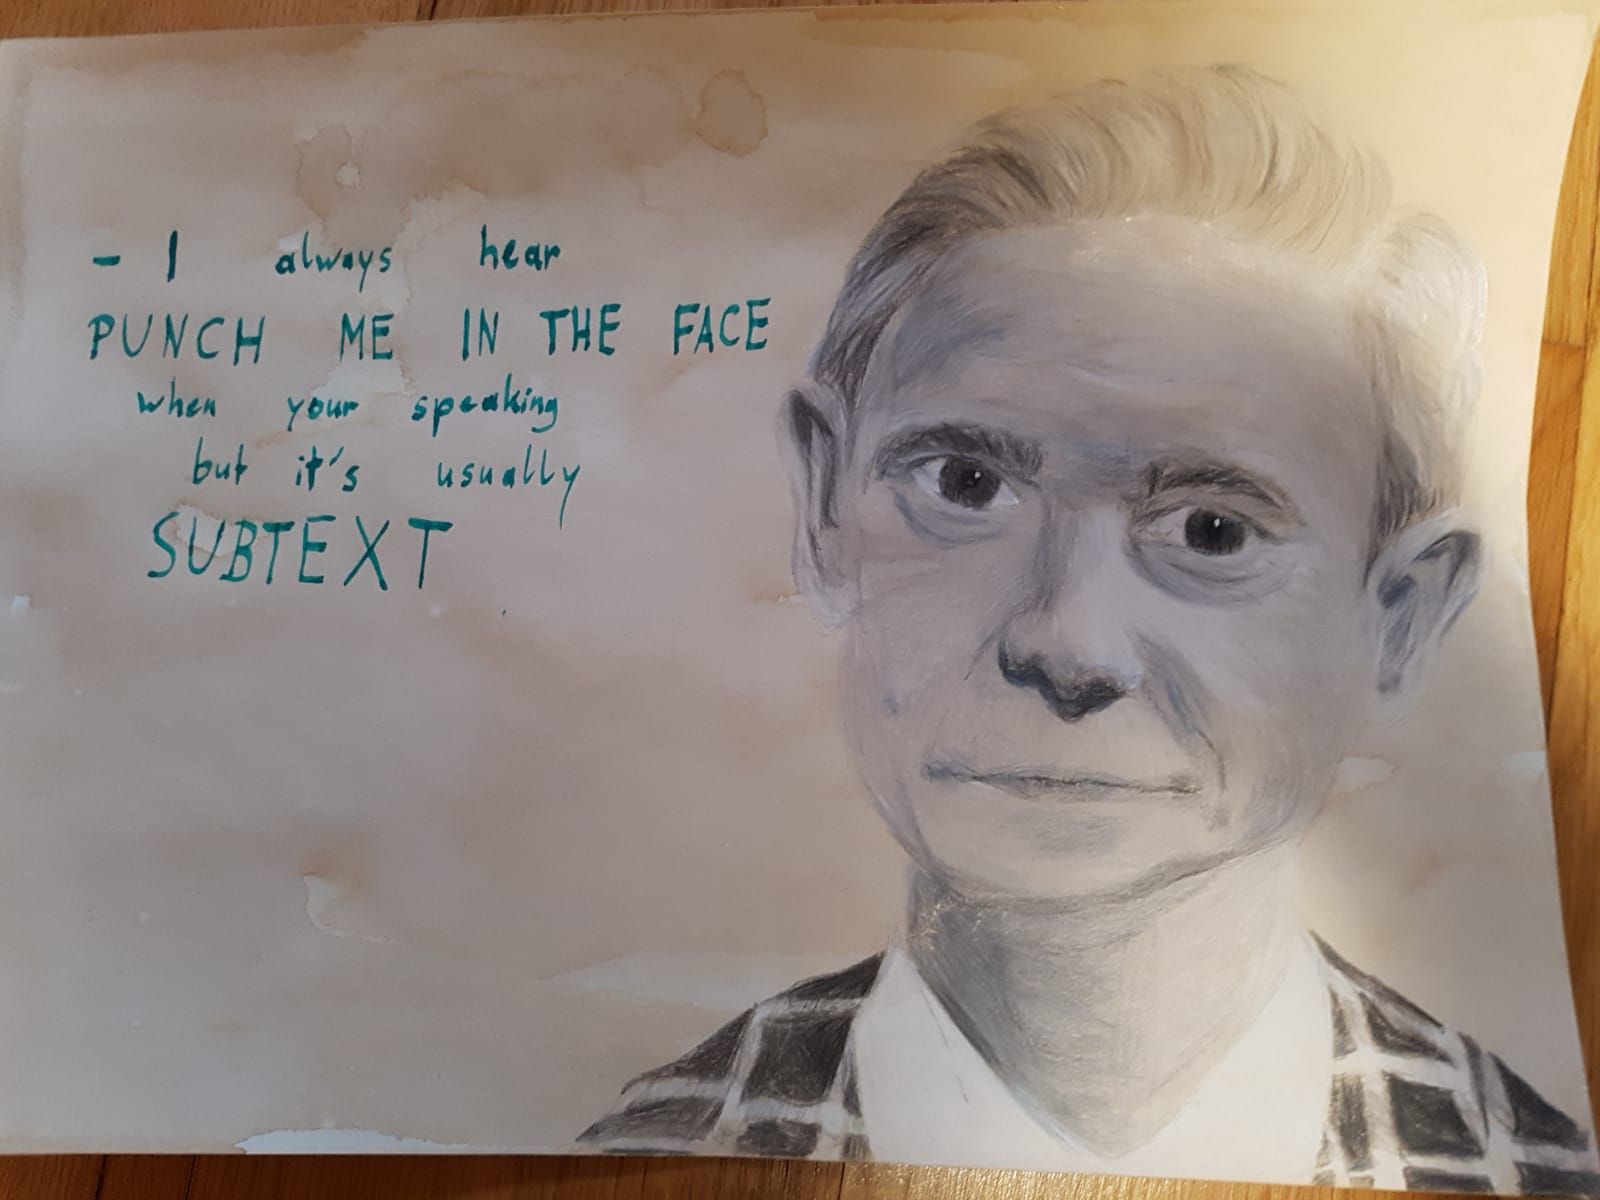 - I always hear
PUNCH ME IN THE FACE
when your speaking
but it's usually
SUBTEXT